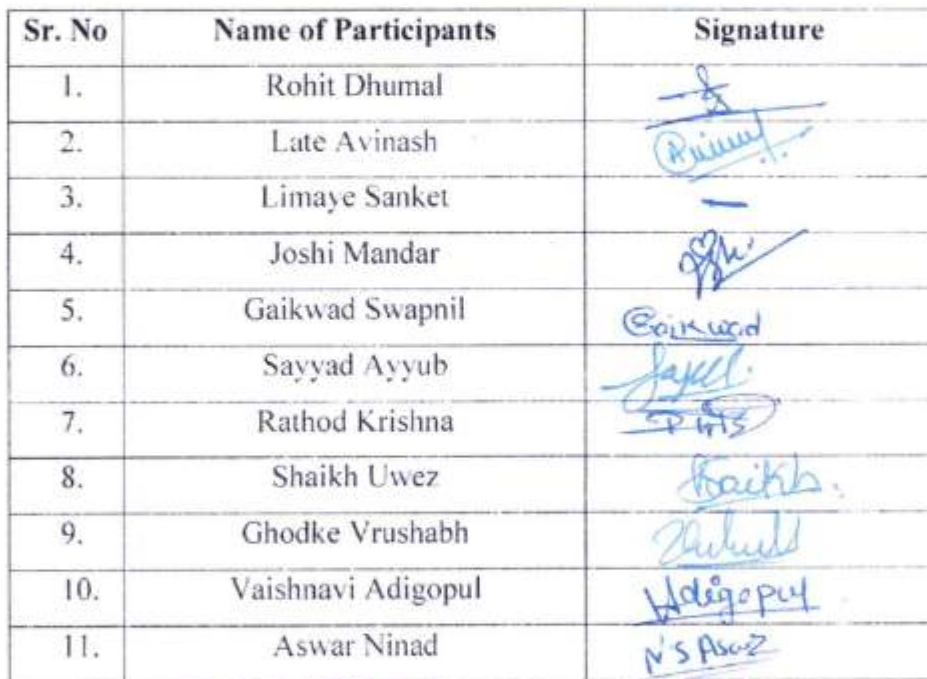 Sr. No Name of Participants Signature
1. Rohit Dhumal
2. Late Avinash
3. Limaye Sanket —
4. Joshi Mandar
5. Gaikwad Swapnil Gaikwad
6. Sayyad Ayyub
7. Rathod Krishna
8. Shaikh Uwez Shaikh.
9. Ghodke Vrushabh
10. Vaishnavi Adigopul Adigopul
11. Aswar Ninad